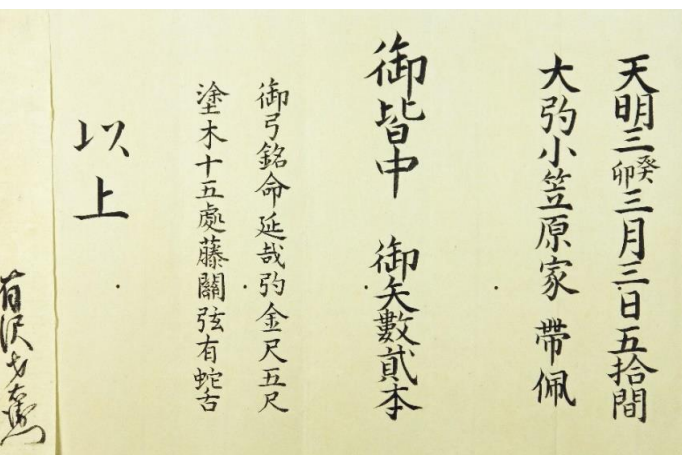 天明三癸卯三月三日五拾間
大的小笠原家 帶佩
御皆中 御矢數貳本
御弓銘命延哉的金尺五尺
塗木十五處藤關弦有蛇舌
以上